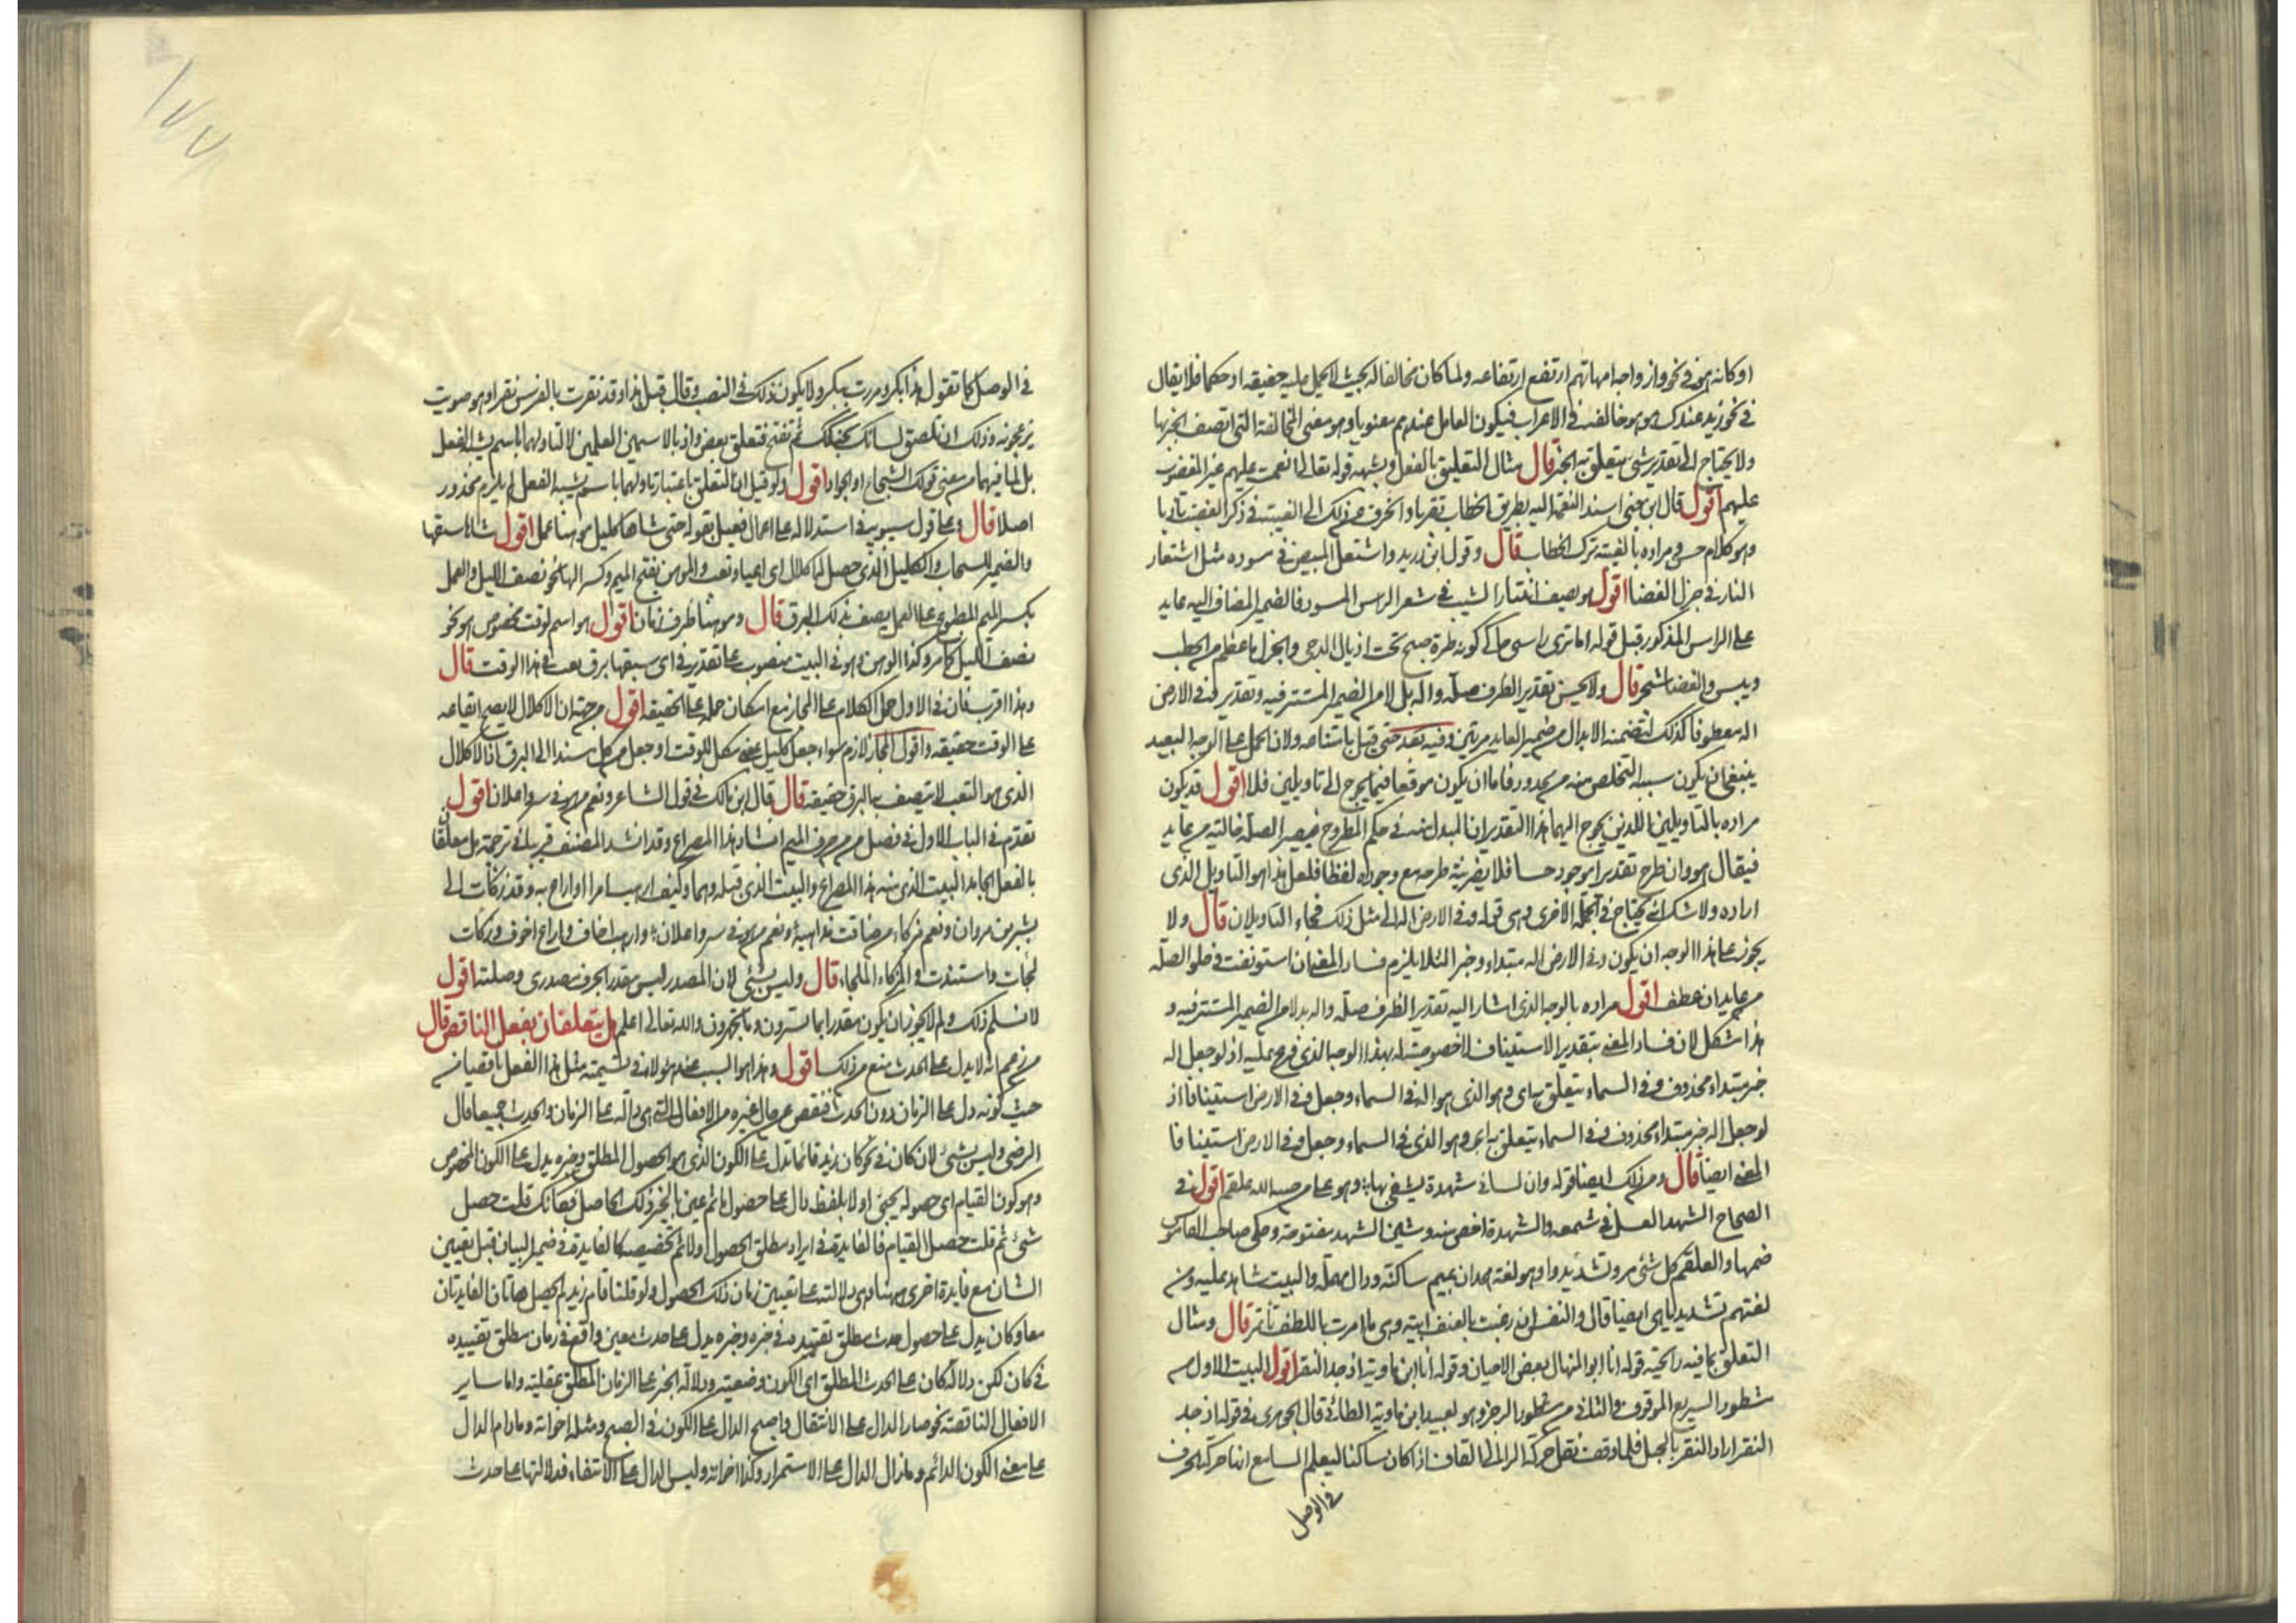 او كانه هو في نحو وازواجه امهاتهم ارتفع ارتفاعه ولما كان مخالفا له بحيث لا يحمل عليه حقيقة او حكما فلا يقال
في نحو زيد عندك هو هو خالفه في الاعراب فيكون العامل عندهم معنويا وهو معنى المخالفة التي اتصف الخبر بها
ولا يحتاج الى تقدير شئ يتعلق به الخبر قال مثال التعليق بالفعل وبشبهه قوله تعالى انعمت عليهم غير المغضوب
عليهم اقول قال ابن جني اسند النعمة اليه بطريق الخطاب تقربا وانحرف عن ذلك الى الغيبة في ذكر الغضب تأدبا
وهو كلام حسن ومراده بالغيبة ترك الخطاب قال وقول ابن دريد واشتعل المبيض في مسوده مثل اشتعار
النار في جزل الغضا اقول هو يصف انتشار الشيب في شعر الراس المسود فالضمير المضاف اليه عايد
على الراس المذكور قبل قوله اما ترى راسى حاكى لونه طرة صبح تحت اذيال الدجى والجزل ما عظم من الحطب
ويبس والغضا شجر قال ولا يحسن تقدير الظرف صلة واله بدلا من الضمير المستتر فيه وتقدير وفي الارض
اله معطوفا كذلك لتضمنه الابدال من ضمير العايد مرتين وفيه بعد حتى قيل بامتناعه ولان الحمل على الوجه البعيد
ينبغي ان يكون سببه التخلص من محذور فاما ان يكون موقعا فيما يحوج الى تاويلين فلا اقول قد يكون
مراده بالتاويلين اللذين يحوج اليهما هذا التقدير ان المبدل منه في حكم المطروح فيصير الصلة خالية من عايد
فيقال هو وان طرح تقديرا موجود حسا فلا يضر نية طرحه مع وجوده لفظا فلعل هذا هو التاويل الذى
اراده ولا شك انه يحتاج في الجملة الاخرى وهي قوله وفي الارض اله الى مثل ذلك فجاء التاويلان قال ولا
يجوز على هذا الوجه ان يكون وفي الارض اله مبتداء وخبرا لئلا يلزم فساد المعنى ان استونفت وخلو الصلة
من عايد ان عطف اقول مراده بالوجه الذى اشار اليه تقدير الظرف صلة واله بدلا من الضمير المستتر فيه و
هذا مشكل لان فساد المعنى بتقدير الاستيناف لا خصوصية له بهذا الوجه الذى فرع عليه اذ لو جعل اله
خبر مبتداء محذوف وفي السماء يتعلق به اى وهو الذى هو اله في السماء وجعل وفي الارض استينافا اذ
لو جعل اله خبر مبتداء محذوف وفي السماء يتعلق به اى وهو الذى في السماء وجعل وفي الارض استينافا
المعنى ايضا قال ومن ذلك ايضا قوله وان لساني شهدة يشتفى بها وهو على من صبه الله علقم اقول في
الصحاح الشهد العسل في شمعه والشهدة اخص منه وشين الشهد مفتوحة وحكى صاحب القاموس
ضمها والعلقم كل شئ مر وتشديد واو هو لغة همدان بميم ساكنة ودال مهملة والبيت شاهد عليه ومن
لغتهم تشديد ياهى ايضا قال والنفس ان رغبت بالعنف ابية وهي ما امرت باللطف تأتمر قال ومثال
التعلق بما فيه رائحته قوله انا ابو المنهال بعض الاحيان وقوله أنا ابن ماوية اذ جد النقر اقول البيت الاول من
مشطور السريع الموقوف والثاني من مشطور الرجز وهو لعبيد ابن ماوية الطائي قال الجوهرى في قوله اذ جد
النقر اراد النقر بالخيل فلما وقف نقل حركة الرا الى القاف اذا كان ساكنا ليعلم السامع انها حركة الحرف
في الوصل
١٧٧
في الوصل كما تقول هذا بكر ومررت ببكر ولا يكون ذلك في النصب وقال قبل هذا وقد نقرت بالفرس نقرا وهو صويت
تزعجونه وذلك ان تلصق لسانك بحنكك ثم تفتح فتعلق بعض واذ بالاسمين العلمين لا لتاولهما باسم يشبه الفعل
بل لما فيهما من معنى قولك الشجاع او الجواد اقول ولو قيل ان التعلق باعتبار تاولهما باسم يشبه الفعل لم يلزم محذور
اصلا قال وعلى قول سيبويه في استدلاله على اعمال فعيل بقوله حتى شاها كليل موهنا عمل اقول شاها سبقها
والضمير للسحاب والكليل الذى حصل له كلال اى اعياء وتعب والموهن بفتح الميم وكسر الهاء نحو نصف الليل والعمل
بكسر الميم المطبوع على العمل يصف بذلك البرق قال وموهنا ظرف زمان اقول هو اسم لوقت مخصوص هو نحو
نصف الليل كما مر وكذا الوهن وهو في البيت منصوب على تقدير في اى سبقها برق تعب في هذا الوقت قال
وهذا اقرب فان في الاول حمل الكلام على المجاز مع امكان حمله على الحقيقة اقول من جهة ان الاكلال لا يصح ايقاعه
على الوقت حقيقة واقول المجاز لازم سواء جعل كليل بمعنى مكل للوقت او جعل من كل مسندا الى البرق اذ الاكلال
الذى هو التعب لا يتصف به البرق حقيقة قال قال ابن مالك في قول الشاعر ونعم من هو في سر واعلان اقول
تقدم في الباب الاول في فصل من من حرف الميم انشاد هذا المصراع وقد انشد المصنف قريبا في ترجمة هل يتعلقان
بالفعل الجامد البيت الذى منه هذا المصراع والبيت الذى قبله وهما وكيف ارهب امرا او اراع به وقد زكأت الى
بشر بن مروان ونعم مزكاء من ضاقت مذاهبه ونعم من هو في سر واعلان وارهب اخاف واراع اخوف وزكأت
لجأت واستندت والمزكاء الملجاء قال وليس بشئ لان المصدر ليس مقدرا بحرف مصدرى وصلته اقول
لا نسلم ذلك ولم لا يجوز ان يكون مقدرا بما تسرون وما تجهرون والله تعالى اعلم هل يتعلقان بفعل الناقص قال
من زعم انه لا يدل على الحدث منع من ذلك اقول وهذا هو السبب عند هؤلاء في تسميته مثل هذا الفعل ناقصا من
حيث كونه دل على الزمان دون الحدث فنقص عن حال غيره من الافعال التي هي دالة على الزمان والحدث جميعا قال
الرضى وليس بشئ لان كان في نحو كان زيد قائما تدل على الكون الذى هو الحصول المطلق وخبره يدل على الكون المخصوص
وهو كون القيام اى حصوله يجئ اولا بلفظ دال على حصول ما ثم عين بالخبر ذلك الحاصل فكأنك قلت حصل
شئ ثم قلت حصل القيام فالفايدة في ايراد مطلق الحصول اولا ثم تخصيصه كالفايدة في ضمير البيان قبل تعيين
الشان مع فايدة اخرى ههنا وهي دلالته على تعيين زمان ذلك الحصول ولو قلنا قام زيد لم يحصل هاتان الفايدتان
معا وكان يدل على حصول حدث مطلق تقييده في خبره وخبره يدل على حدث معين واقع في زمان مطلق تقييده
في كان لكن دلالة كان على الحدث المطلق اى الكون وضعية ودلالة الخبر على الزمان المطلق عقلية واما ساير
الافعال الناقصة نحو صار الدال على الانتقال واصبح الدال على الكون في الصبح ومثله اخواته ومادام الدال
على معنى الكون الدائم ومازال الدال على الاستمرار وكذا اخواته وليس الدال على الانتفاء فدلالتها على حدث